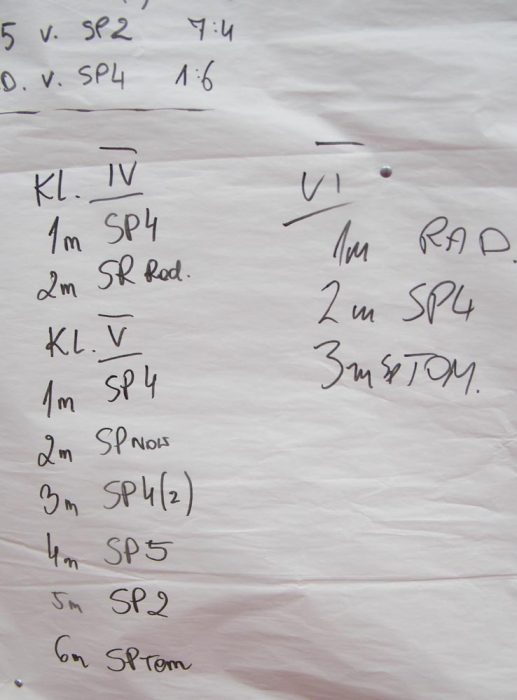 5 v. SP2 7:4
D. v. SP4 1:6
KL. IV
1m SP4
2m SR Rad.
KL. V
1m SP4
2m SP NOW
3m SP4(2)
4m SP5
5m SP2
6m SP Tom
VI
1m RAD.
2m SP4
3m SP TOM.